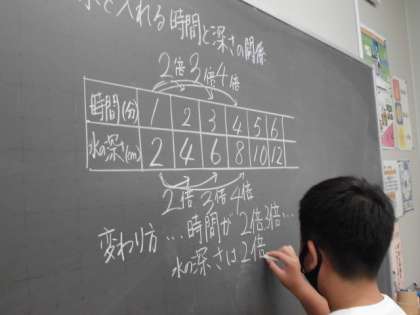 水を入れる時間と深さの関係
2倍 3倍 4倍
時間(分) 1 2 3 4 5 6
水の深さ(cm) 2 4 6 8 10 12
2倍 3倍 4倍
変わり方…時間が2倍3倍…
水の深さは2倍